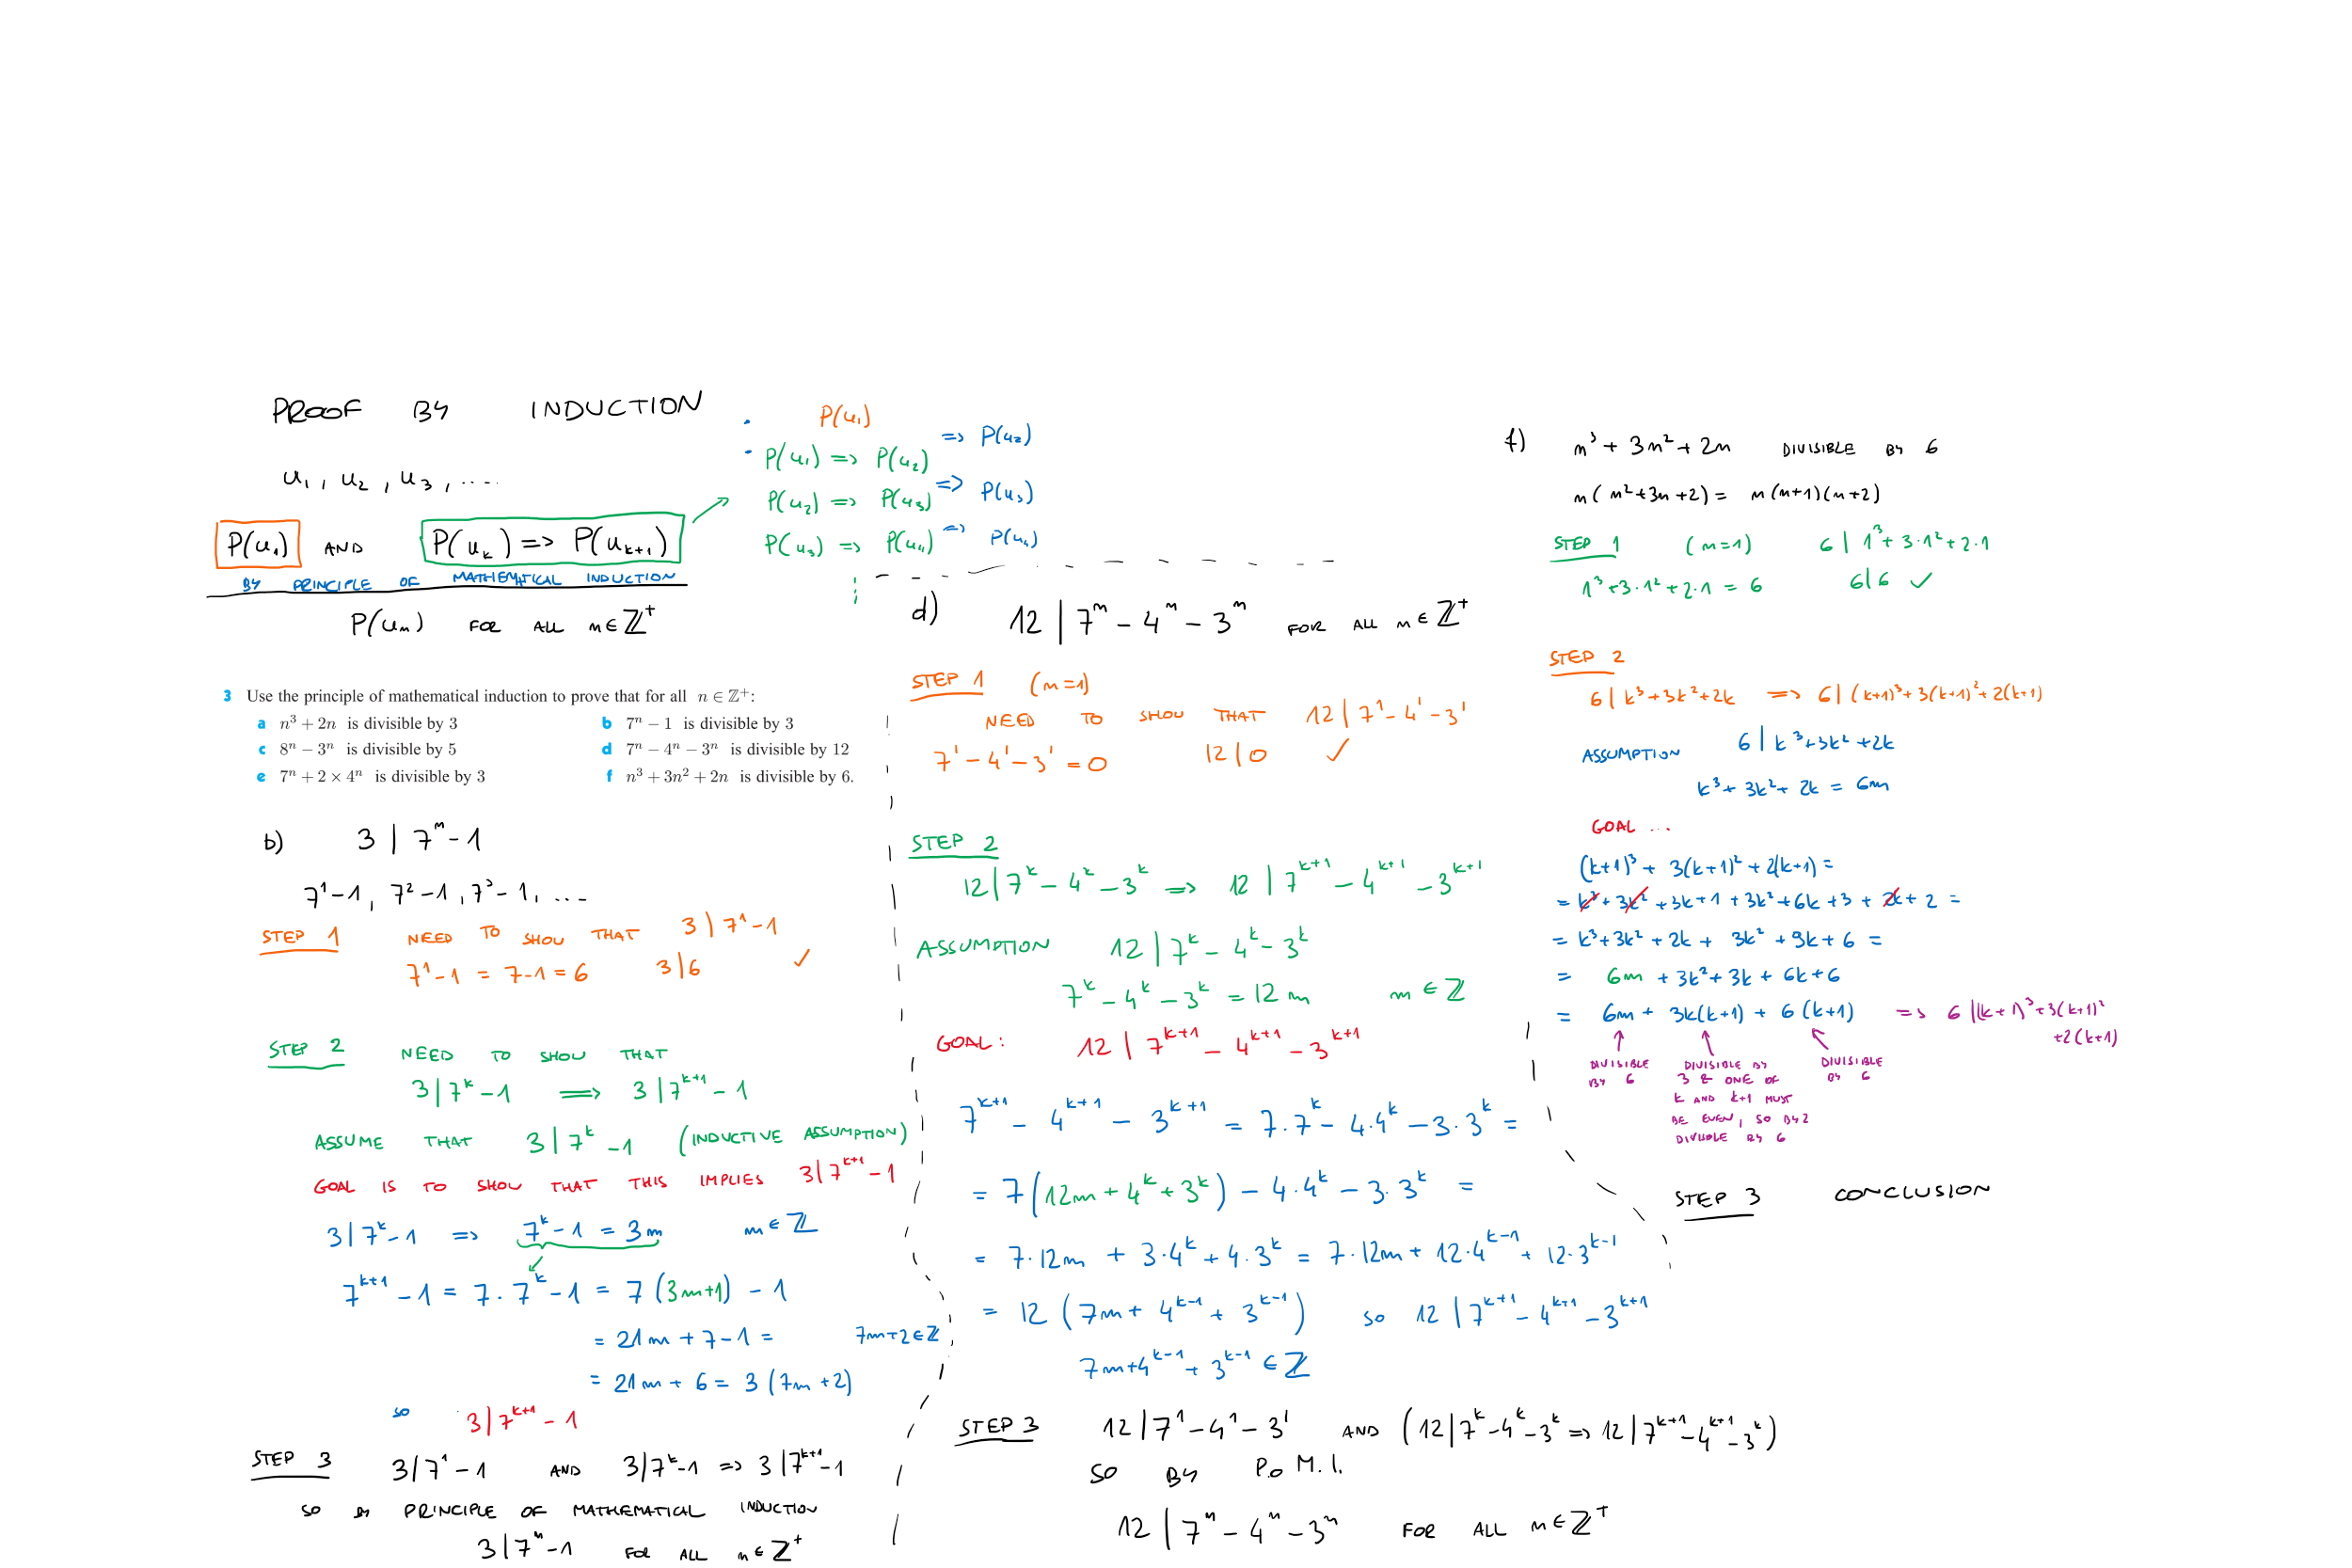 PROOF BY INDUCTION
u₁, u₂, u₃, ....
P(u₁) AND P(uₖ) => P(uₖ₊₁)
BY PRINCIPLE OF MATHEMATICAL INDUCTION
P(uₙ) FOR ALL n∈ℤ⁺
• P(u₁)
=> P(u₂)
• P(u₁) => P(u₂)
=> P(u₃)
P(u₂) => P(u₃)
=> P(u₄)
P(u₃) => P(u₄)
3 Use the principle of mathematical induction to prove that for all n ∈ ℤ⁺:
a n³ + 2n is divisible by 3
b 7ⁿ − 1 is divisible by 3
c 8ⁿ − 3ⁿ is divisible by 5
d 7ⁿ − 4ⁿ − 3ⁿ is divisible by 12
e 7ⁿ + 2 × 4ⁿ is divisible by 3
f n³ + 3n² + 2n is divisible by 6.
b) 3 | 7ⁿ - 1
7¹-1, 7²-1, 7³-1, ...
STEP 1 NEED TO SHOW THAT 3 | 7¹-1
7¹-1 = 7-1 = 6 3|6 ✓
STEP 2 NEED TO SHOW THAT
3 | 7ᵏ-1 => 3 | 7ᵏ⁺¹ - 1
ASSUME THAT 3 | 7ᵏ-1 (INDUCTIVE ASSUMPTION)
GOAL IS TO SHOW THAT THIS IMPLIES 3|7ᵏ⁺¹-1
3|7ᵏ-1 => 7ᵏ-1 = 3m m∈ℤ
7ᵏ⁺¹ - 1 = 7·7ᵏ - 1 = 7(3m+1) - 1
= 21m + 7-1 = 7m+2∈ℤ
= 21m + 6 = 3(7m+2)
SO 3|7ᵏ⁺¹ - 1
STEP 3 3|7¹-1 AND 3|7ᵏ-1 => 3|7ᵏ⁺¹-1
SO BY PRINCIPLE OF MATHEMATICAL INDUCTION
3|7ⁿ-1 FOR ALL n∈ℤ⁺
d) 12 | 7ⁿ - 4ⁿ - 3ⁿ FOR ALL n∈ℤ⁺
STEP 1 (n=1)
NEED TO SHOW THAT 12 | 7¹-4¹-3¹
7¹-4¹-3¹ = 0 12|0 ✓
STEP 2
12|7ᵏ-4ᵏ-3ᵏ => 12 | 7ᵏ⁺¹-4ᵏ⁺¹-3ᵏ⁺¹
ASSUMPTION 12 | 7ᵏ-4ᵏ-3ᵏ
7ᵏ-4ᵏ-3ᵏ = 12m m∈ℤ
GOAL: 12 | 7ᵏ⁺¹-4ᵏ⁺¹-3ᵏ⁺¹
7ᵏ⁺¹ - 4ᵏ⁺¹ - 3ᵏ⁺¹ = 7·7ᵏ - 4·4ᵏ - 3·3ᵏ =
= 7(12m + 4ᵏ + 3ᵏ) - 4·4ᵏ - 3·3ᵏ =
= 7·12m + 3·4ᵏ + 4·3ᵏ = 7·12m + 12·4ᵏ⁻¹ + 12·3ᵏ⁻¹
= 12(7m + 4ᵏ⁻¹ + 3ᵏ⁻¹) SO 12 | 7ᵏ⁺¹-4ᵏ⁺¹-3ᵏ⁺¹
7m+4ᵏ⁻¹+3ᵏ⁻¹∈ℤ
STEP 3 12|7¹-4¹-3¹ AND (12|7ᵏ-4ᵏ-3ᵏ => 12|7ᵏ⁺¹-4ᵏ⁺¹-3ᵏ)
SO BY P.O M.I.
12 | 7ⁿ-4ⁿ-3ⁿ FOR ALL n∈ℤ⁺
f) n³ + 3n² + 2n DIVISIBLE BY 6
n(n²+3n+2) = n(n+1)(n+2)
STEP 1 (n=1) 6 | 1³ + 3·1² + 2·1
1³+3·1²+2·1 = 6 6|6 ✓
STEP 2
6 | k³+3k²+2k => 6 | (k+1)³+3(k+1)²+2(k+1)
ASSUMPTION 6 | k³+3k²+2k
k³+3k²+2k = 6m
GOAL ...
(k+1)³ + 3(k+1)² + 2(k+1) =
= k³+3k²+3k+1+3k²+6k+3+2k+2 =
= k³+3k²+2k + 3k²+9k+6 =
= 6m + 3k²+3k + 6k+6
= 6m + 3k(k+1) + 6(k+1) => 6 |(k+1)³+3(k+1)²
+2(k+1)
DIVISIBLE BY 6
DIVISIBLE BY 3 & ONE OF k AND k+1 MUST BE EVEN, SO BY 2 DIVISIBLE BY 6
DIVISIBLE BY 6
STEP 3 CONCLUSION